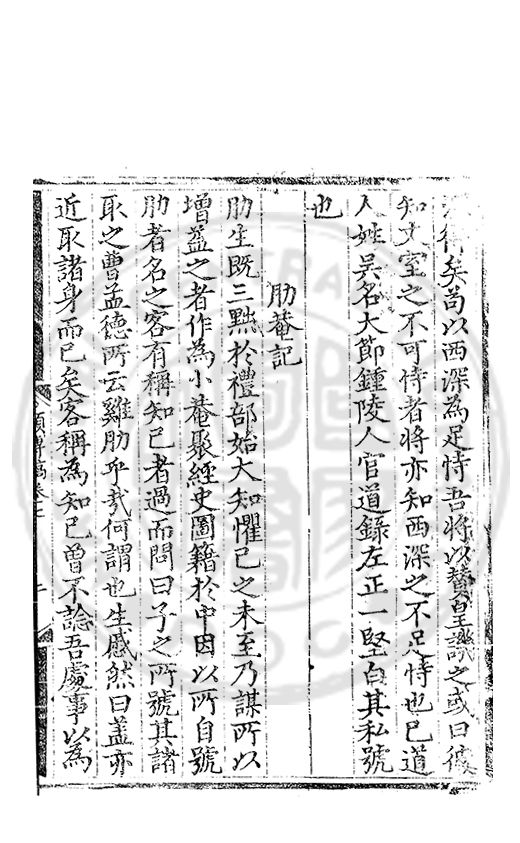 行矣苟以西深為足恃吾將以贊皇譏之或曰彼
知文室之不可恃者將亦知西深之不足恃也已道
人姓吳名大節鍾陵人官道錄左正一堅白其私號
也
肋菴記
肋生既三黜於禮部始大知懼已之未至乃謀所以
增益之者作為小菴聚經史圖籍於中因以所自號
肋者名之客有稱知已者過而問曰子之所號其諸
取之曹孟德所云雞肋乎哉何謂也生慼然曰蓋亦
近取諸身而已矣客稱為知已曾不諗吾處事以為